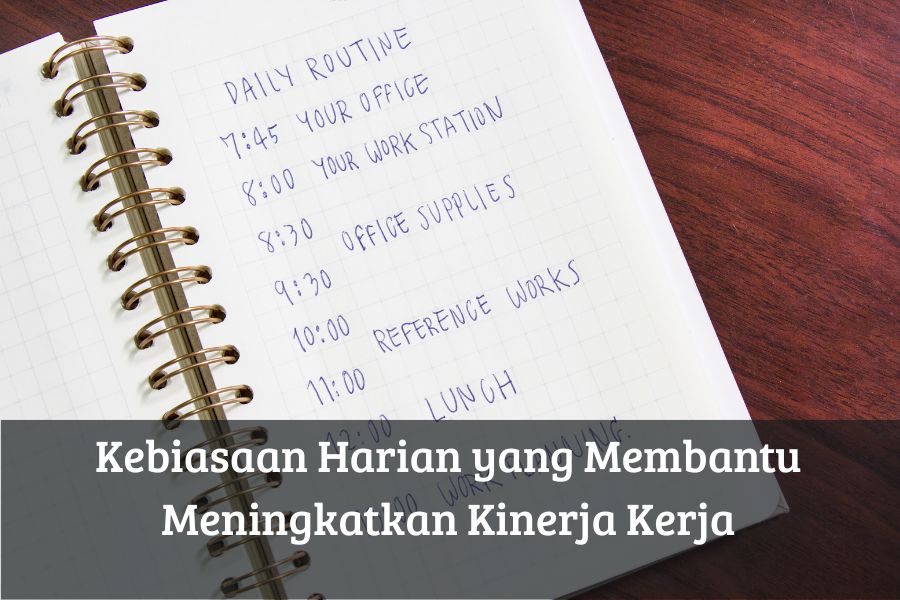 DAILY ROUTINE
7:45 YOUR OFFICE
8:00 YOUR WORK STATION
8:30 OFFICE SUPPLIES
9:30
10:00 REFERENCE WORKS
11:00
12:00 LUNCH
WORK
Kebiasaan Harian yang Membantu
Meningkatkan Kinerja Kerja